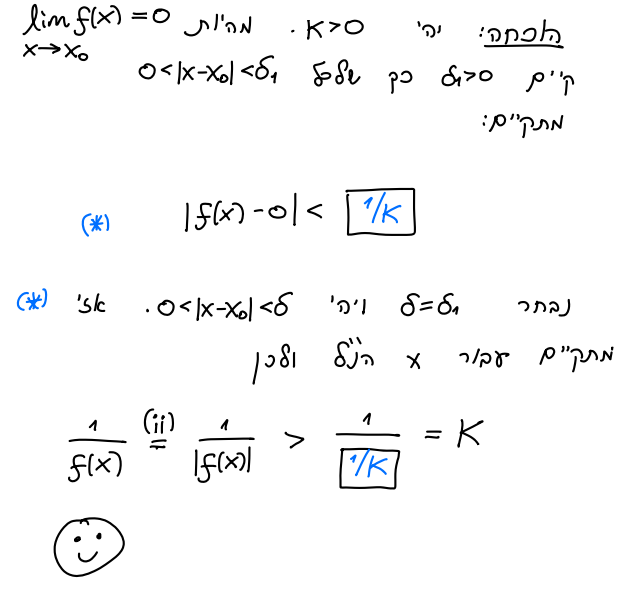 הוכחה: יהי K>0. מהיות lim f(x)=0
x→x₀
קיים δ₁>0 כך שלכל 0<|x-x₀|<δ₁
מתקיים:
(*) |f(x)-0| < 1/K
נבחר δ=δ₁ ויהי 0<|x-x₀|<δ. אזי (*)
מתקיים עבור x הנ"ל ולכן
1/f(x) (ii)= 1/|f(x)| > 1/(1/K) = K